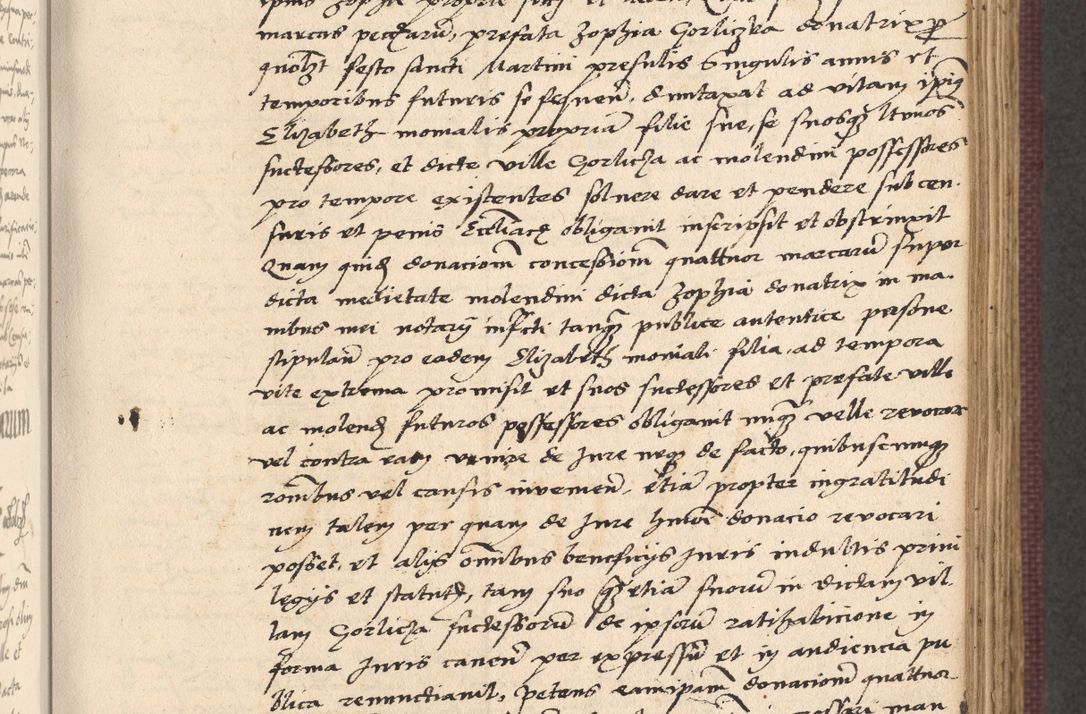 marcas pecuarū, prefata Zophia Gorliczka donatrix p
quol3t festo sancti Martini presulis singulis annis et
temporibus futuris se sequen̄. duntaxat ad vitam ipius
Elizabeth monialis propriā filie sue, se suosq3 ltimos
successores, et dicte ville Gorlicza ac molendini possessores
pro tempore existentes soluere dare et pendere sub cen-
suris et penis Ecclīacis obligauit inscripsit et obstrinxit
Quam quid donacionem concessionem quattuor marcarū super
dicta medietate molendini dicta Zophia donatrix in ma-
nibus mei notarij infrcti tanq3 publice autentice persone
stipulan̄ pro eadem Elizabeth moniali filia, ad tempora
vite extrema promisit et suos successores et prefate ville
ac molend futuros possessores obligauit nunq3 velle revocare
vel contra eam venire de Jure neq3 de facto, quibuscunq3
rōnibus vel causis inuenien̄. etiā propter ingratitudi
nem talem per quam de Jure hmōi donacio revocari
posset, et alijs ōnibus beneficijs Juris indultis priui
legijs et statutis, tam suo q3 etiā suorū in dictam vil-
lam Gorlicza successorū de ipsorū ratihabicione in
forma Juris canen̄ per expressū et in audiencia pu
blica renunctiauit, Petens eamipam donacionem quattuor